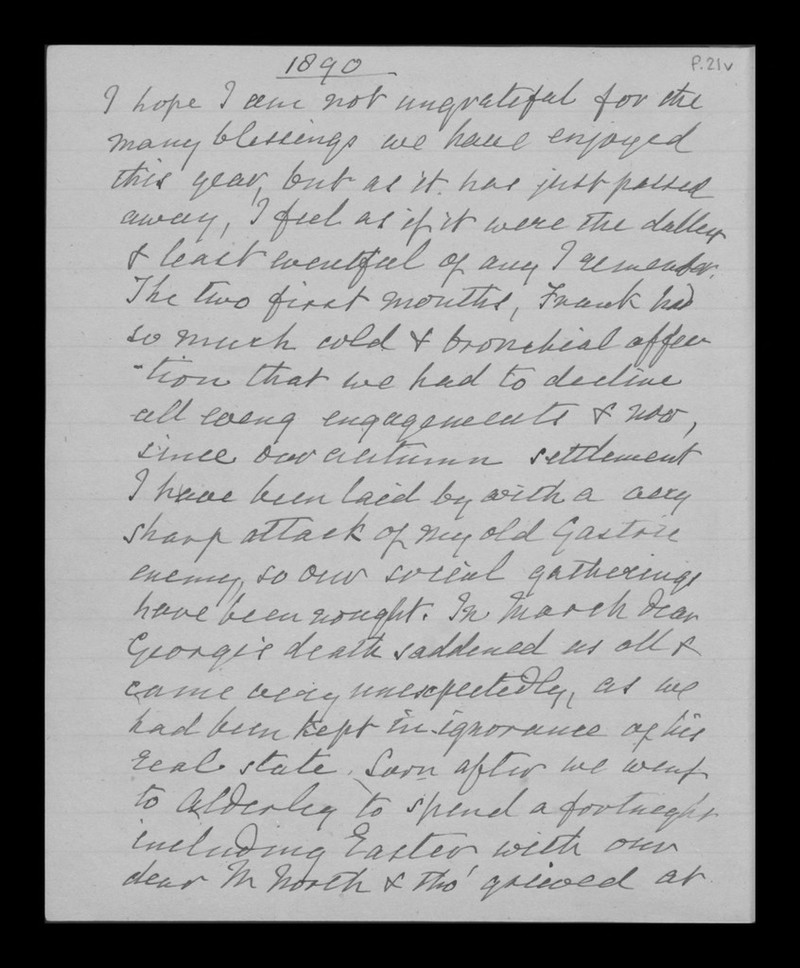 1890
P.21v
I hope I am not ungrateful for the
many blessings we have enjoyed
this year, but as it has just passed
away, I feel as if it were the dullest
& least eventful of any I remember.
The two first months, Frank had
so much cold & bronchial affec
"tion that we had to decline
all eveng engagements & now,
since our autumn settlement
I have been laid by with a very
sharp attack of my old Gastric
enemy, so our social gatherings
have been nought. In March dear
Georgie's death saddened us all &
came very unexpectedly, as we
had been kept in ignorance of his
real state. Soon after we went
to Alderley to spend a fortnight
including Easter with our
dear M North & tho' grieved at